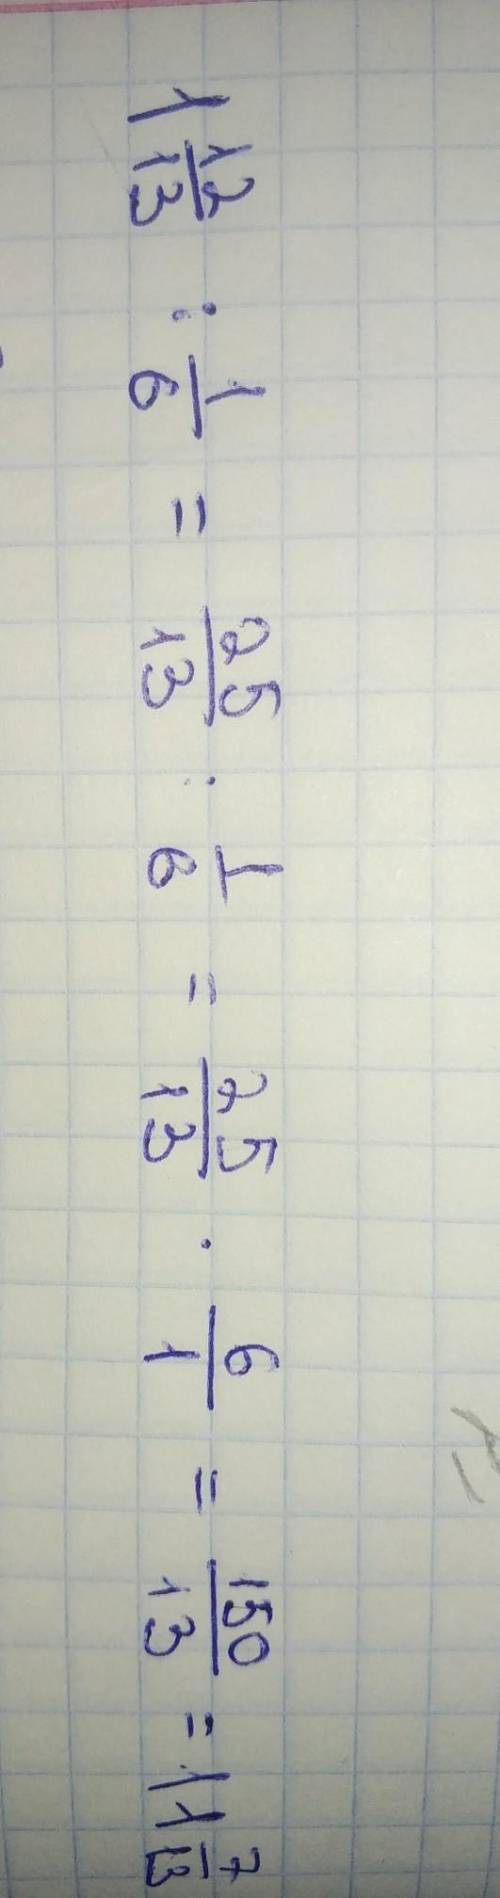 1 12/13 : 1/6 = 25/13 : 1/6 = 25/13 · 6/1 = 150/13 = 11 7/13